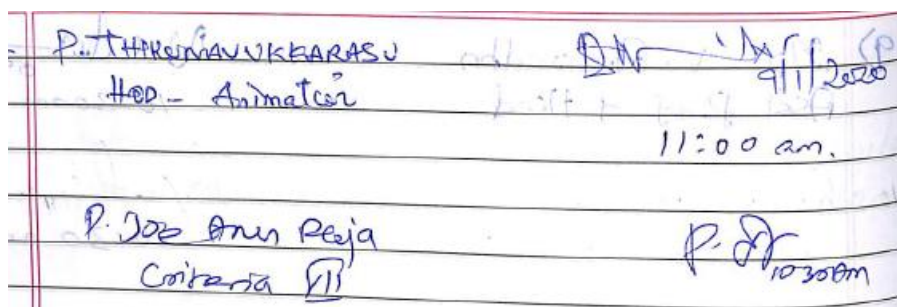 P. THIRUNAVUKKARASU
9/1/2020
HOD - Animation
11:00 am.
P. Joe Arun Raja
Criteria VII
10 30 Am